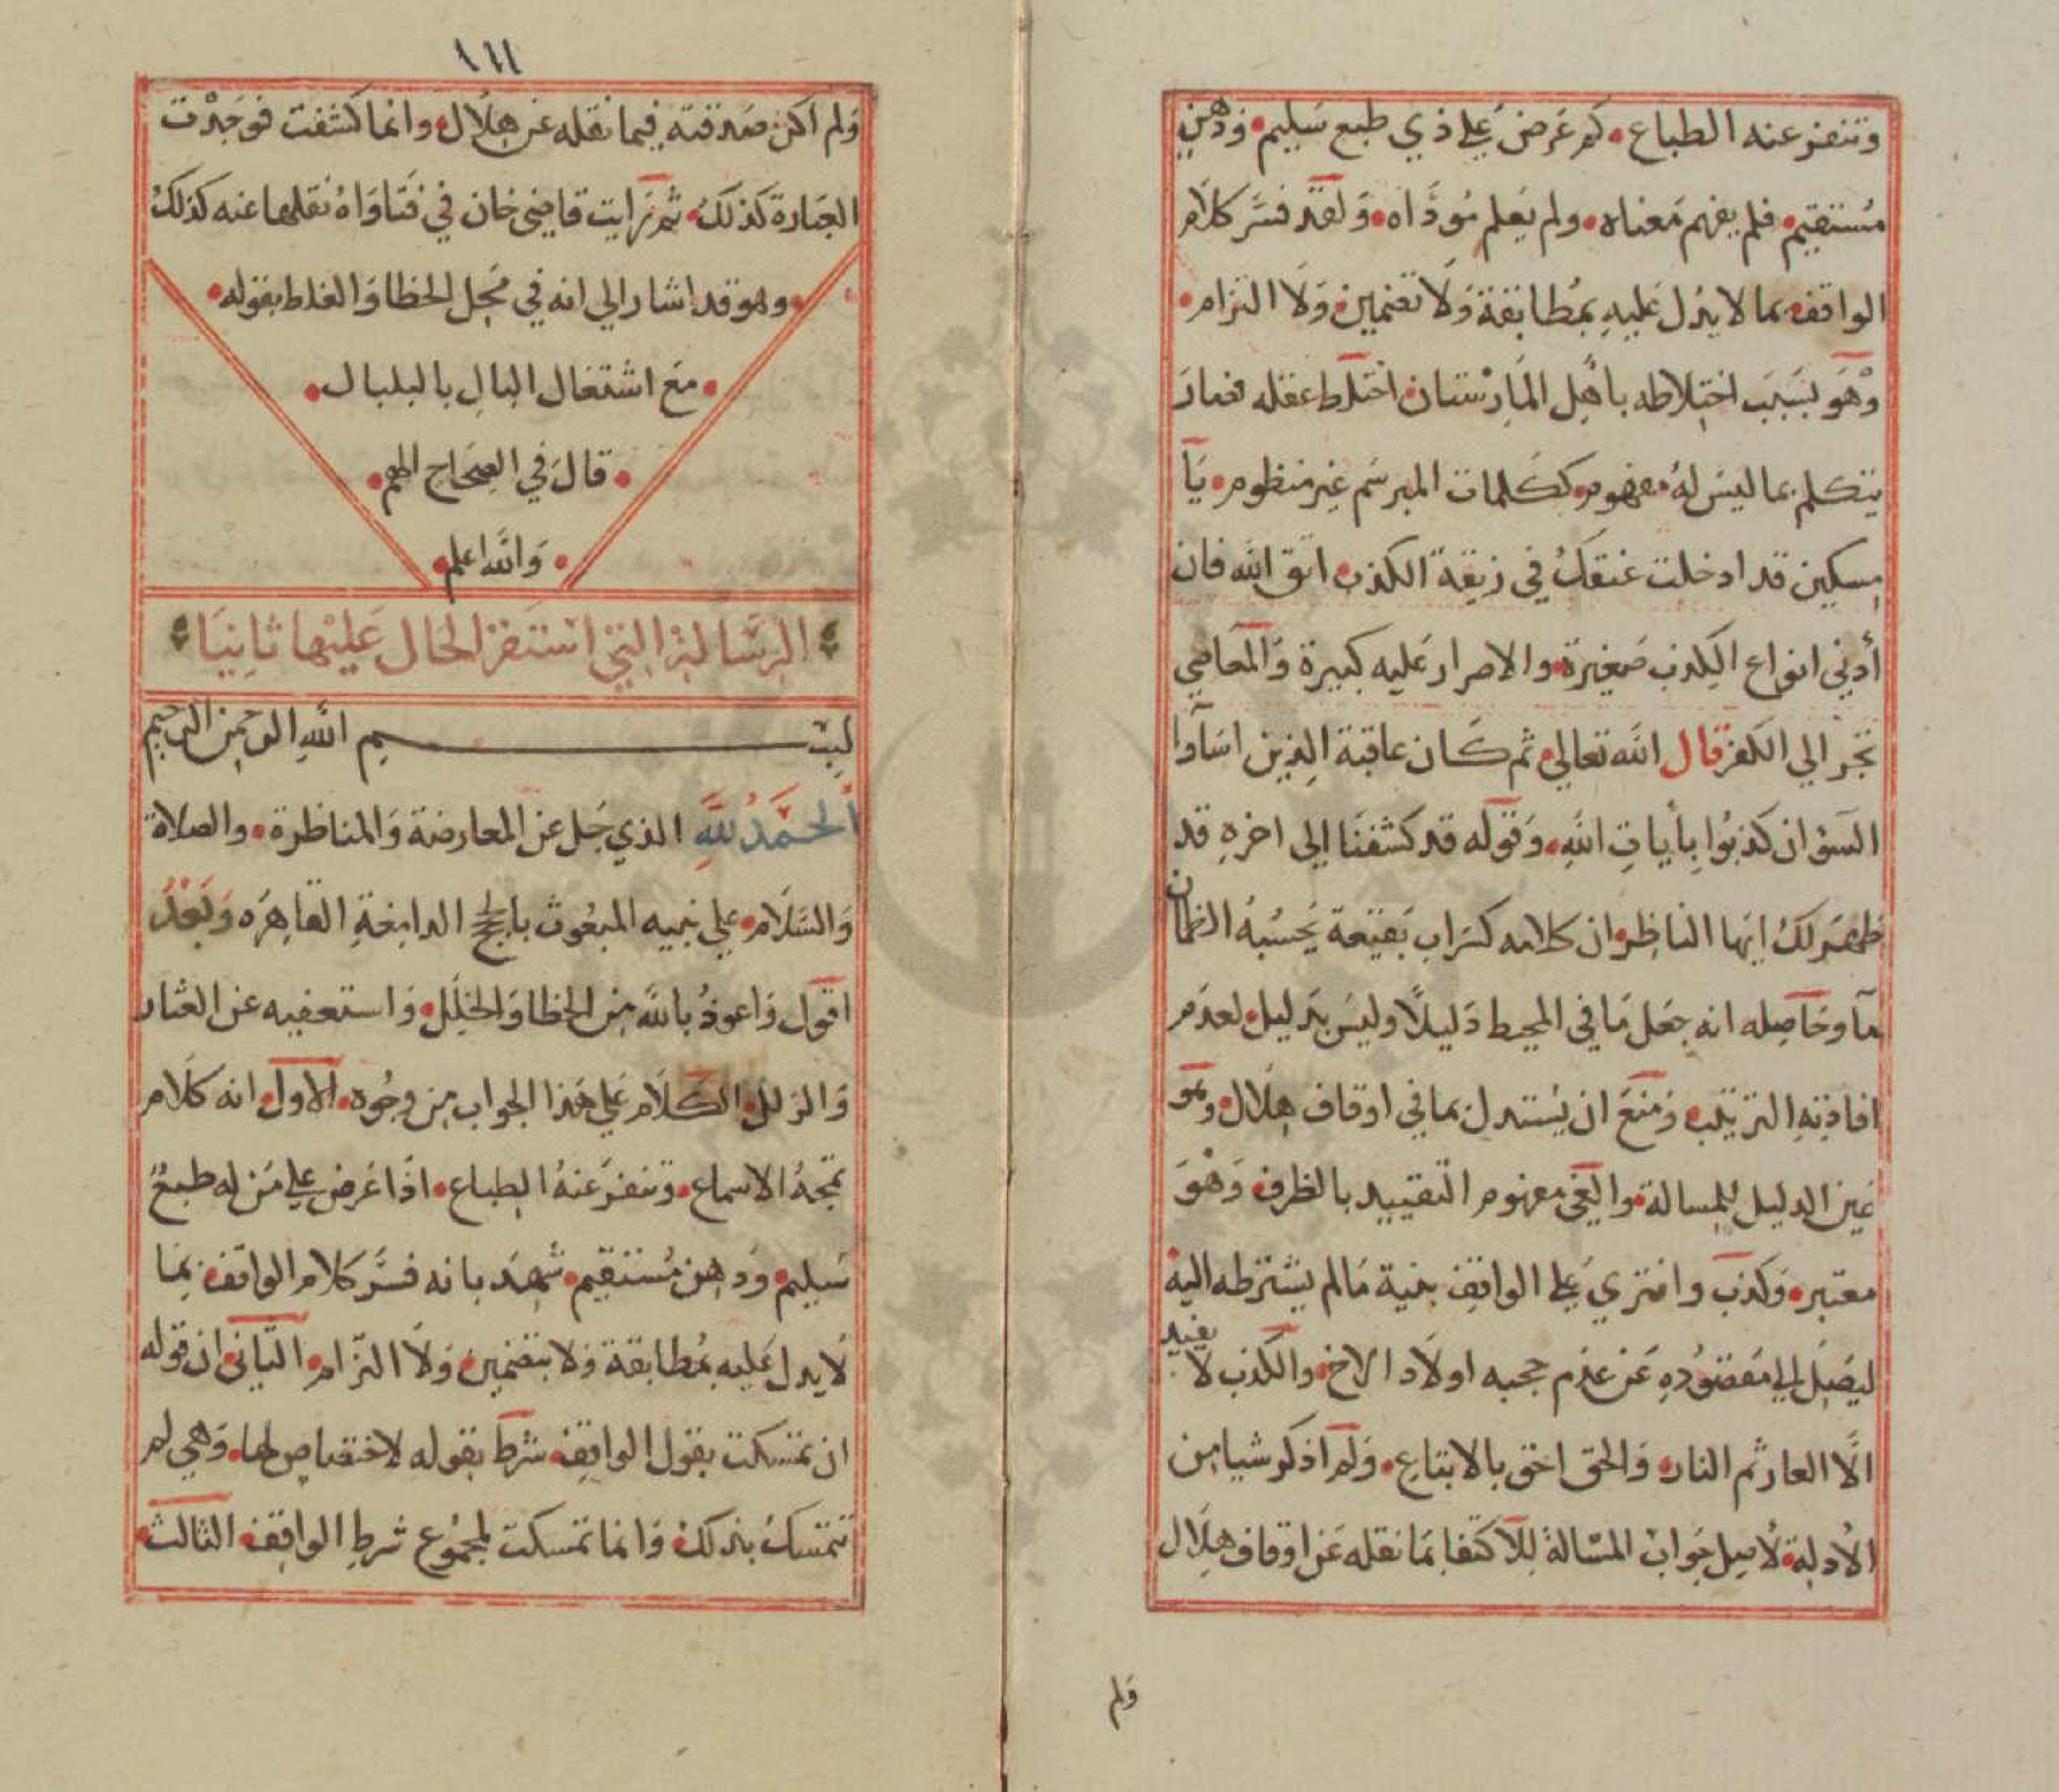 وتنفر عنه الطباع • كم عرض على ذي طبع سليم • وذهن
مستقيم • فلم يفهم معناه • ولم يعلم مؤداه • ولقد فسر كلام
الواقف بما لا يدل عليه بمطابقة ولا تضمين ولا التزام •
وهو بسبب اختلاطه باهل المارستان اختلط عقله فصار
يتكلم بما ليس له مفهوم • ككلمات المبرسم غير منظوم • يا
مسكين قد ادخلت عنقك في ربقة الكذب • اتق الله فان
أدنى انواع الكذب صغيرة • والاصرار عليه كبيرة والمعاصي
تجر الي الكفر قال الله تعالي • ثم كان عاقبة الذين اساؤا
السوٓ ان كذبوا بأيات الله • وقوله قد كشفنا إلى اخره قد
ظهر لك ايها الناظر • ان كلامه كسراب بقيعة يحسبه الظمان
مآ وحاصله انه جعل ما في المحيط دليلا وليس بدليل • لعدم
افادته الترتيب • ومنع ان يستدل بما في اوقاف هلال • وهو
عين الدليل للمسالة • والغي مفهوم التقييد بالظرف • وهو
معتبر • وكذب وافتري علي الواقف بنية مالم يشترطه اليه
ليصل إلي مقصوده عن عدم حجبه اولاد الاخ • والكذب لا يفيد
الا العار ثم النار • والحق احق بالاتباع • ولم اذكر شيا من
الأدلة • لأصل جواب المسالة للاكتفا بما نقله عن اوقاف هلال
ولم
١١١
ولم اكن صدقته فيما نقله عن هلال • وانما كشفت فوجدت
العبارة كذلك • ثم رايت قاضي خان في فتاواه نقلها عنه كذلك
• وهو قد اشار الي انه في محل الخطا والغلط بقوله •
• مع اشتغال البال بالبلبال •
• قال في الصحاح الهم •
• والله اعلم •
الرسالة التي استقر الحال عليها ثانيا
بسم الله الرحمن الرحيم
الحمد لله الذي جل عن المعارضة والمناظرة • والصلاة
والسلام • علي نبيه المبعوث بالحجج الدامغة القاهره وبعد
اقول واعوذ بالله من الخطا والخلل • واستعفيه عن العثار
والزلل • الكلام علي هذا الجواب من وجوه • الاول • انه كلام
تمجه الاسماع • وتنفر عنه الطباع • اذا عرض علي من له طبع
سليم • وذهن مستقيم • شهد بانه فسر كلام الواقف بما
لا يدل عليه بمطابقة ولا بتضمين ولا التزام • الثاني • ان قوله
ان تمسكت بقول الواقف شرط بقوله لاختصاص لها • وهي لم
تتمسك بذلك • وانما تمسكت بمجموع شرط الواقف • الثالث •